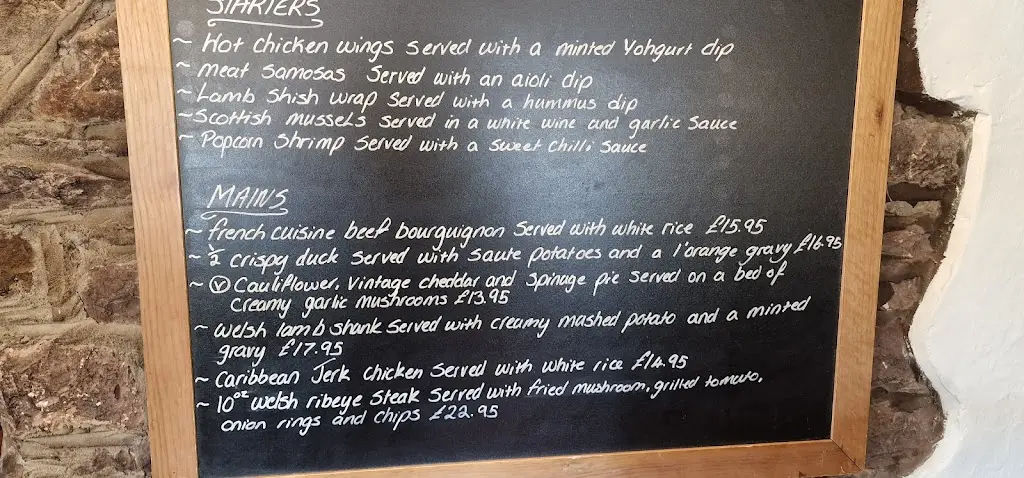 STARTERS
~ Hot chicken wings served with a minted Yohgurt dip
~ meat samosas Served with an aioli dip
~ Lamb Shish wrap Served with a hummus dip
~ Scottish mussels served in a white wine and garlic Sauce
~ Popcorn Shrimp Served with a Sweet Chilli Sauce
MAINS
~ french cuisine beef bourguignon Served with white rice £15.95
~ ½ crispy duck Served with Saute potatoes and a l'orange gravy £16.95
~ Ⓥ Cauliflower, Vintage cheddar and Spinage pie served on a bed of
Creamy garlic mushrooms £13.95
~ Welsh lamb Shank Served with creamy mashed potato and a minted
gravy £17.95
~ Caribbean Jerk Chicken Served with white rice £14.95
~ 10oz welsh ribeye Steak Served with fried mushroom, grilled tomato,
onion rings and chips £22.95